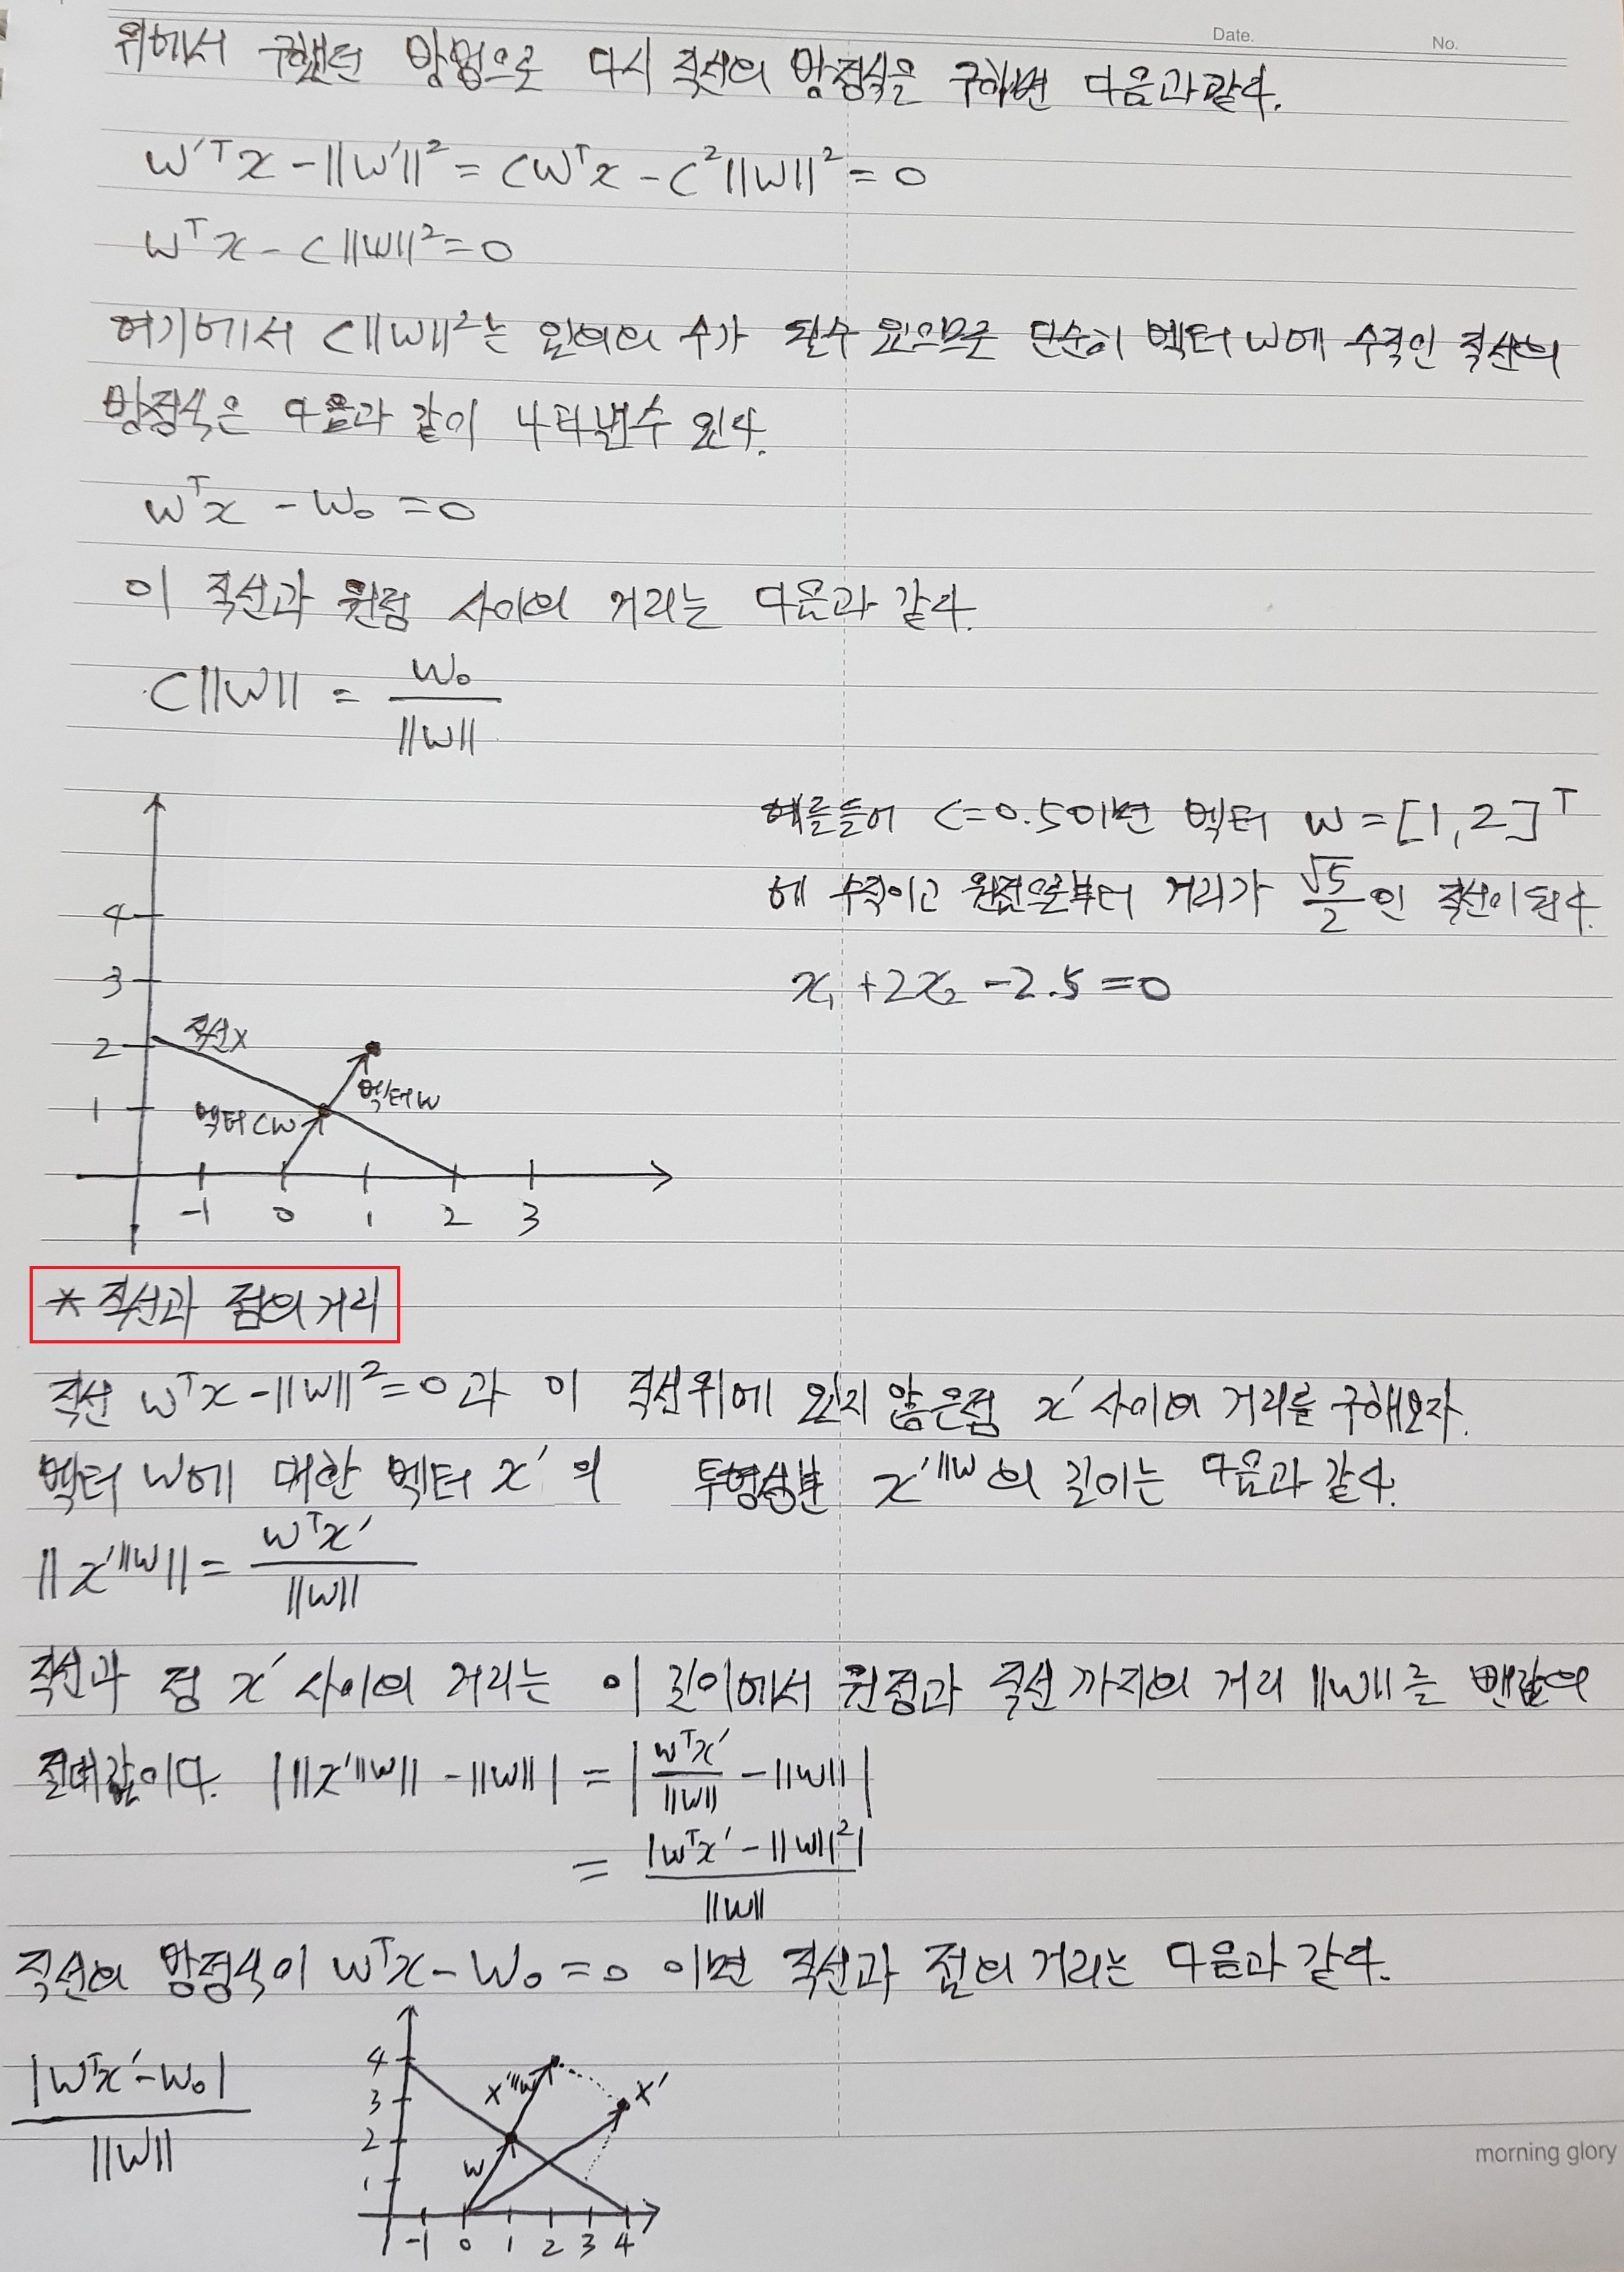 Date.
No.
위에서 구했던 방법으로 다시 직선의 방정식을 구하면 다음과 같다.
w'ᵀx - ||w'||² = cwᵀx - c²||w||² = 0
wᵀx - c||w||² = 0
여기에서 c||w||²는 임의의 수가 될수 있으므로 단순히 벡터 w에 수직인 직선의
방정식은 다음과 같이 나타낼수 있다.
wᵀx - w₀ = 0
이 직선과 원점 사이의 거리는 다음과 같다.
c||w|| = w₀ / ||w||
예를들어 c=0.5이면 벡터 w = [1, 2]ᵀ
에 수직이고 원점으로부터 거리가 √5/2 인 직선이 된다.
x₁ + 2x₂ - 2.5 = 0
4
3
2 직선x
1 벡터cw 벡터w
-1 0 1 2 3
* 직선과 점의 거리
직선 wᵀx - ||w||² = 0 과 이 직선위에 있지 않은점 x' 사이의 거리를 구해보자.
벡터 w에 대한 벡터 x'의 투영성분 x'^||w 의 길이는 다음과 같다.
||x'^||w|| = wᵀx' / ||w||
직선과 점 x' 사이의 거리는 이 길이에서 원점과 직선 까지의 거리 ||w||를 뺀값의
절대값이다. | ||x'^||w|| - ||w|| | = | wᵀx' / ||w|| - ||w|| |
= |wᵀx' - ||w||²| / ||w||
직선의 방정식이 wᵀx - w₀ = 0 이면 직선과 점의 거리는 다음과 같다.
|wᵀx' - w₀| / ||w||
4
3 x'^||w x'
2
1 w
-1 0 1 2 3 4
morning glory